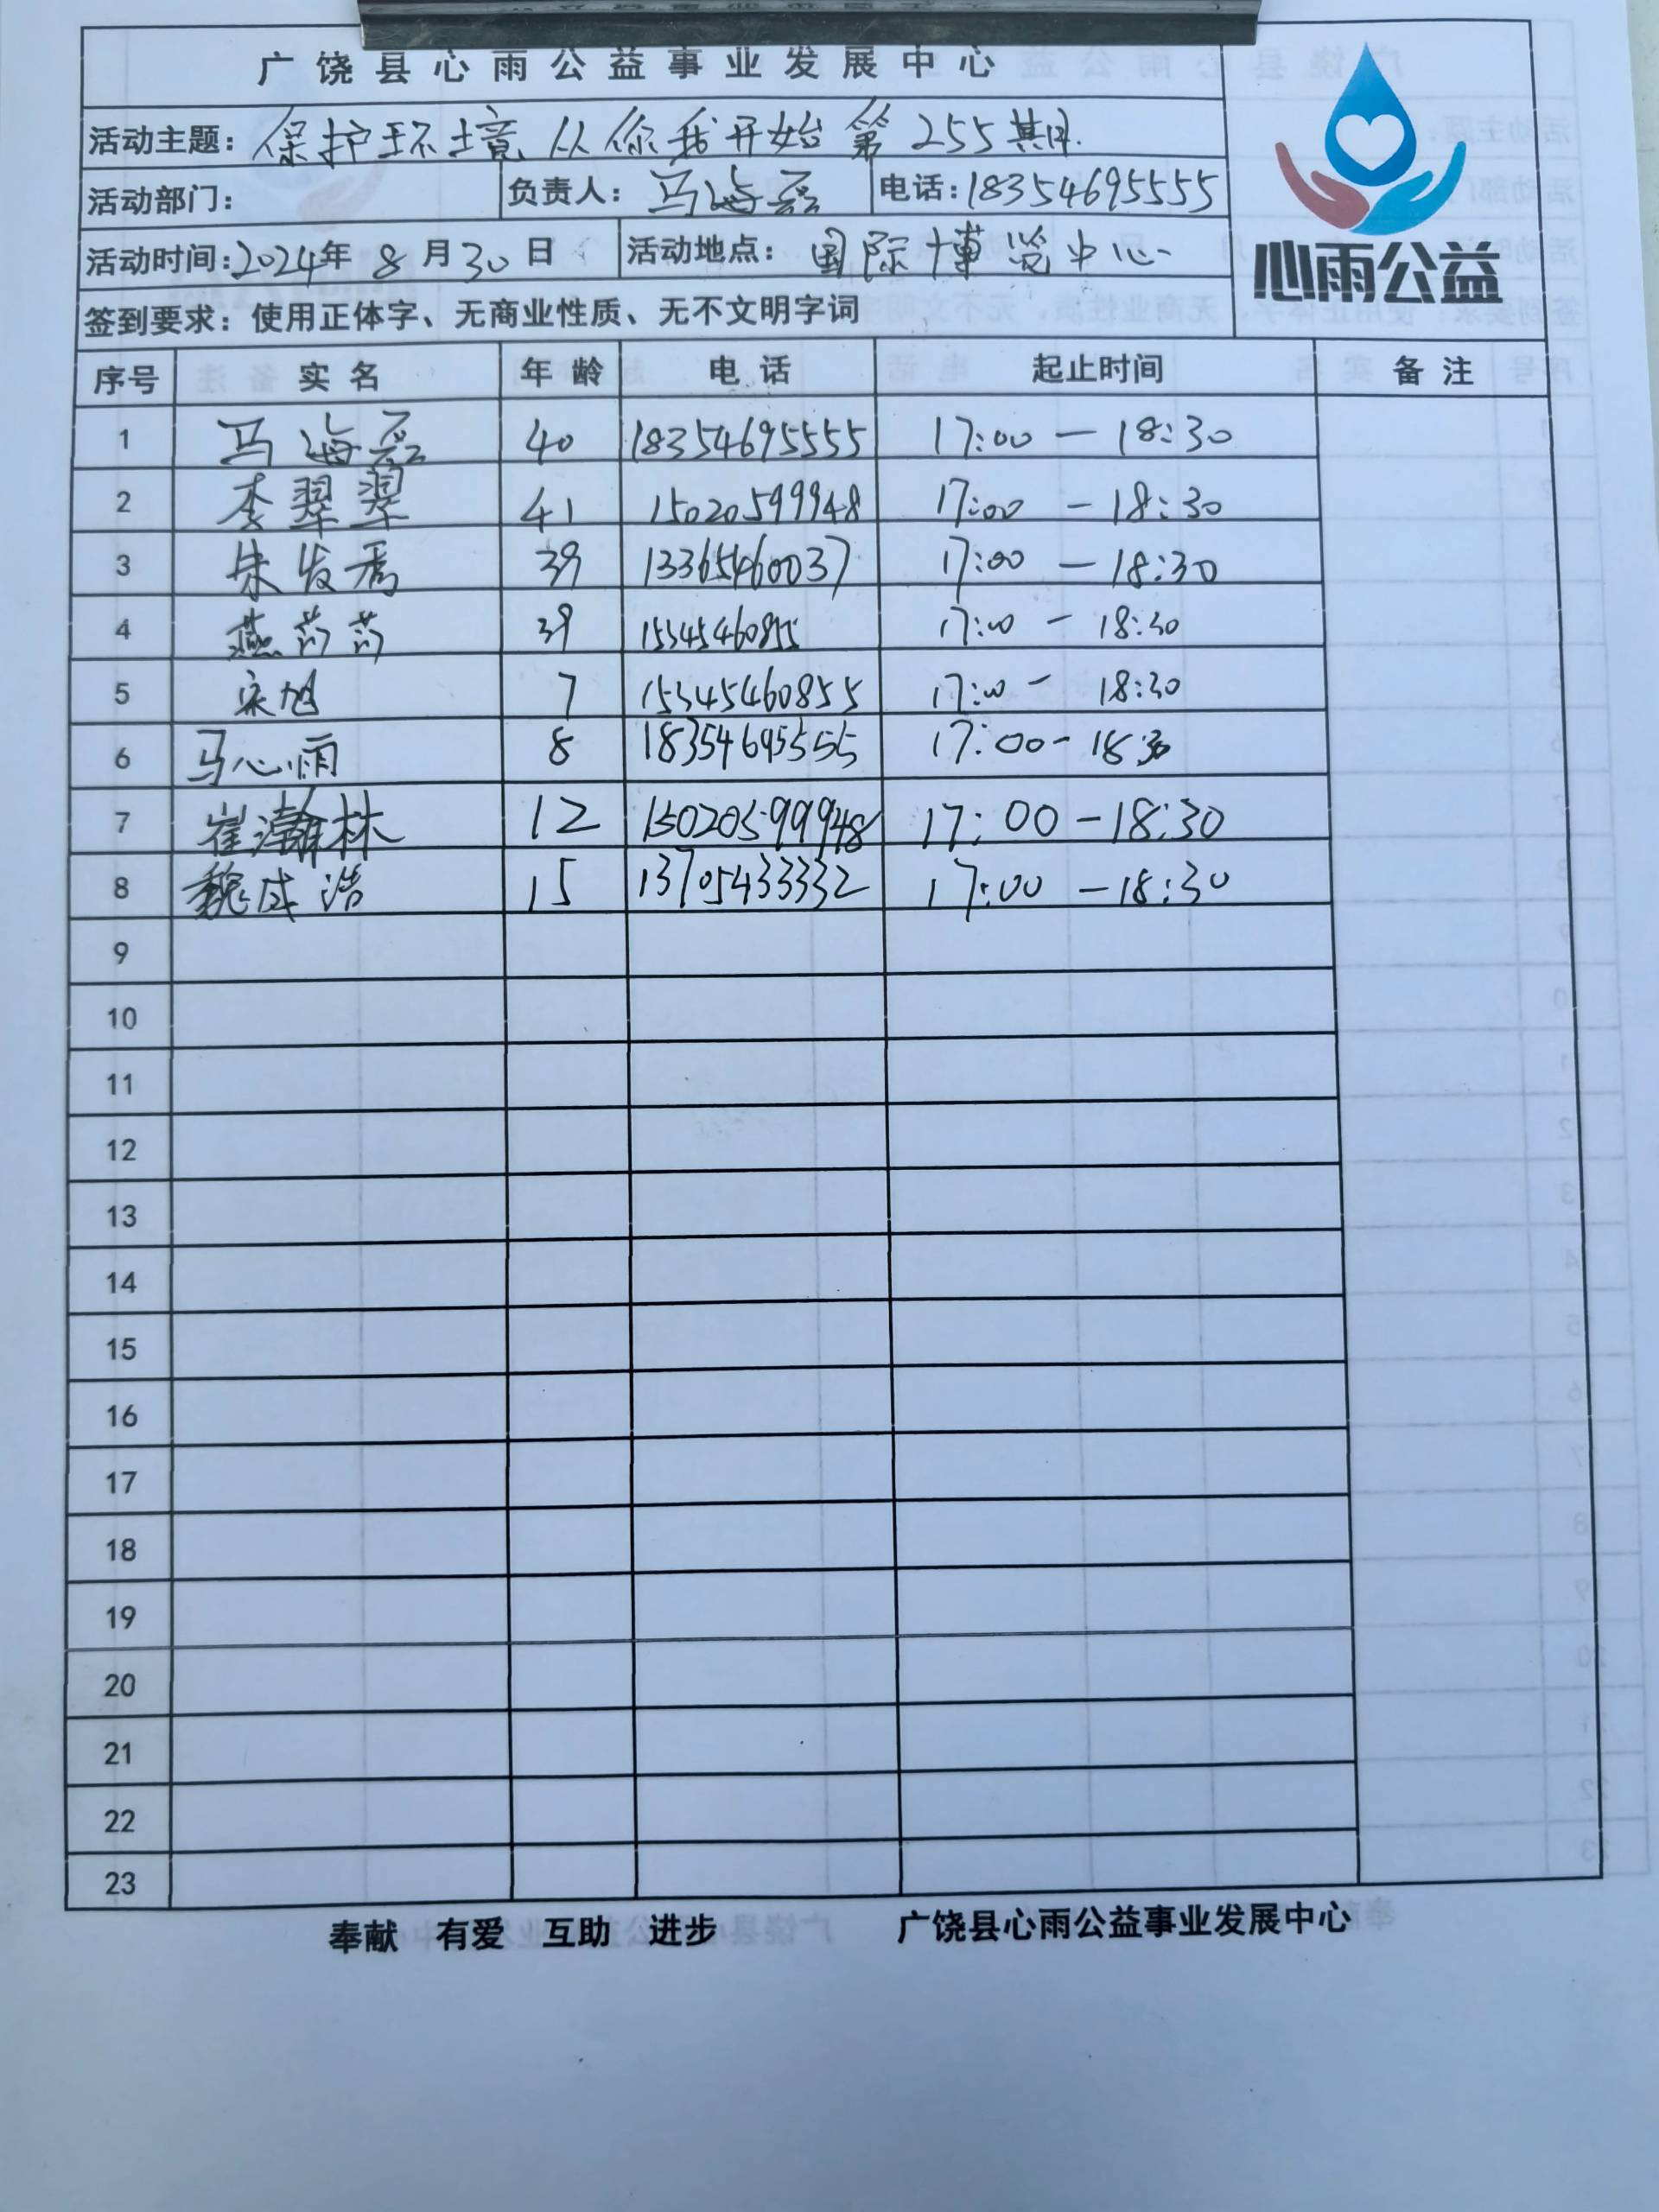 广饶县心雨公益事业发展中心
活动主题：保护环境 从你我开始 第255期.
心雨公益
活动部门： 负责人：马海磊 电话：18354695555
活动时间：2024年8月30日 活动地点：国际博览中心
签到要求：使用正体字、无商业性质、无不文明字词
序号 实名 年龄 电话 起止时间 备注
1 马海磊 40 18354695555 17:00 — 18:30
2 李翠翠 41 15020599948 17:00 — 18:30
3 朱发 39 13365460037 17:00 — 18:30
4 燕 39 15345460855 17:00 — 18:30
5 宋旭 7 15345460855 17:00 — 18:30
6 马心雨 8 18354695555 17:00 - 18:30
7 崔瀚林 12 15020599948 17:00 - 18:30
8 魏成浩 15 13705433332 17:00 - 18:30
9
10
11
12
13
14
15
16
17
18
19
20
21
22
23
奉献 有爱 互助 进步 广饶县心雨公益事业发展中心